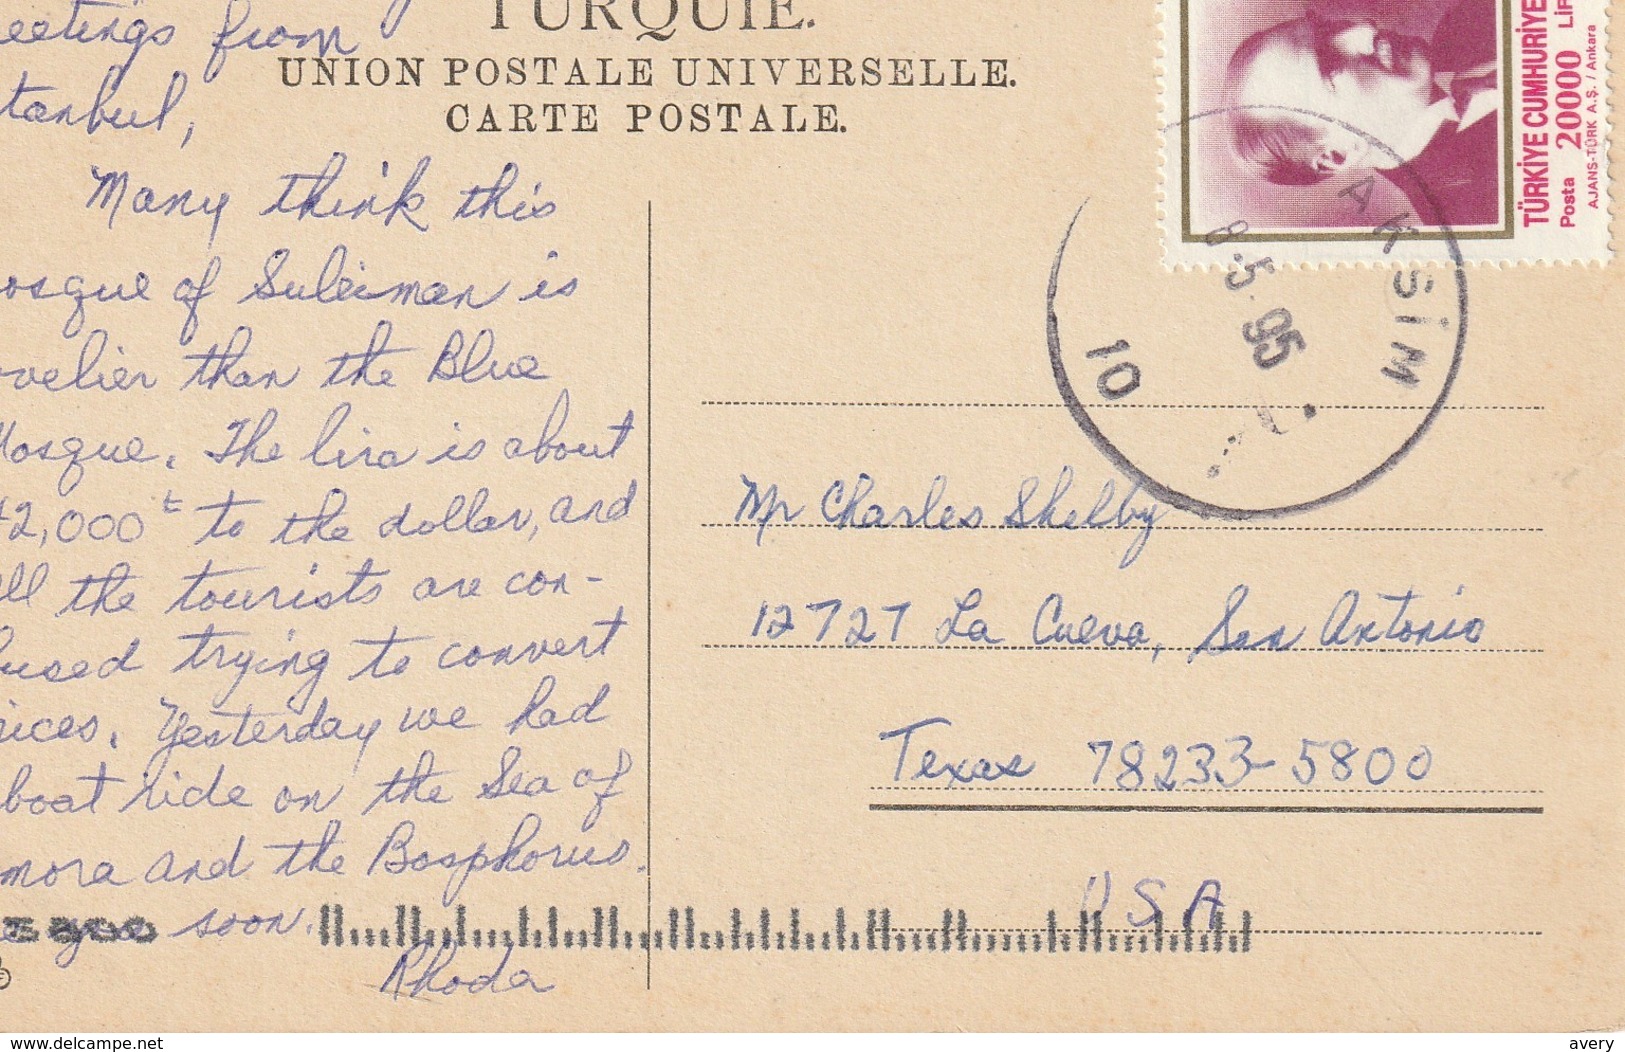 TURQUIE.
UNION POSTALE UNIVERSELLE.
CARTE POSTALE.
eetings from
tanbul,
Many think this
osque of Suleiman is
velier than the Blue
Mosque. The lira is about
42,000 t to the dollar, and
ll the tourists are con-
fused trying to convert
rices. Yesterday we had
boat ride on the Sea of
mora and the Bosphorus.
soon.
Rhoda
TÜRKİYE CUMHURİYE
Posta 20000 LİR
AJANS-TÜRK A.Ş. / Ankara
AKSİM
8.5.95
10
Mr Charles Shelby
12727 La Cueva, San Antonio
Texas 78233-5800
USA
www.delcampe.net
avery